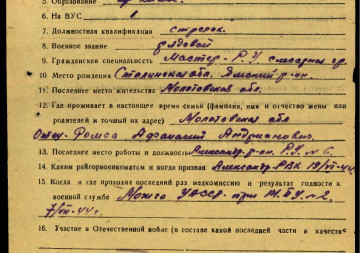 5. Образование
6. На ВУС 1
7. Должностная квалификация стрелок
8. Военное звание рядовой
9. Гражданская специальность Мастер-Р.У. слесарное
10. Место рождения Сталинская обл.
11. Последнее место жительства Молотовская обл.
12. Где проживает в настоящее время семья (фамилия, имя и отчество жены или
родителей и точный их адрес) Молотовская обл
Отец-Ромса Афанасий Андрианович
13. Последнее место работы и должность Александр. р-он. Р.У. № 6.
14. Каким райгорвоенкоматом и когда призван Александр. РВК 19/VI-44
15. Когда и где проходил последний раз медкомиссию и результат годности к
военной службе Можга УАССР при
7/VII-44г.
16. Участие в Отечественной войне (в составе какой последней части и в качестве